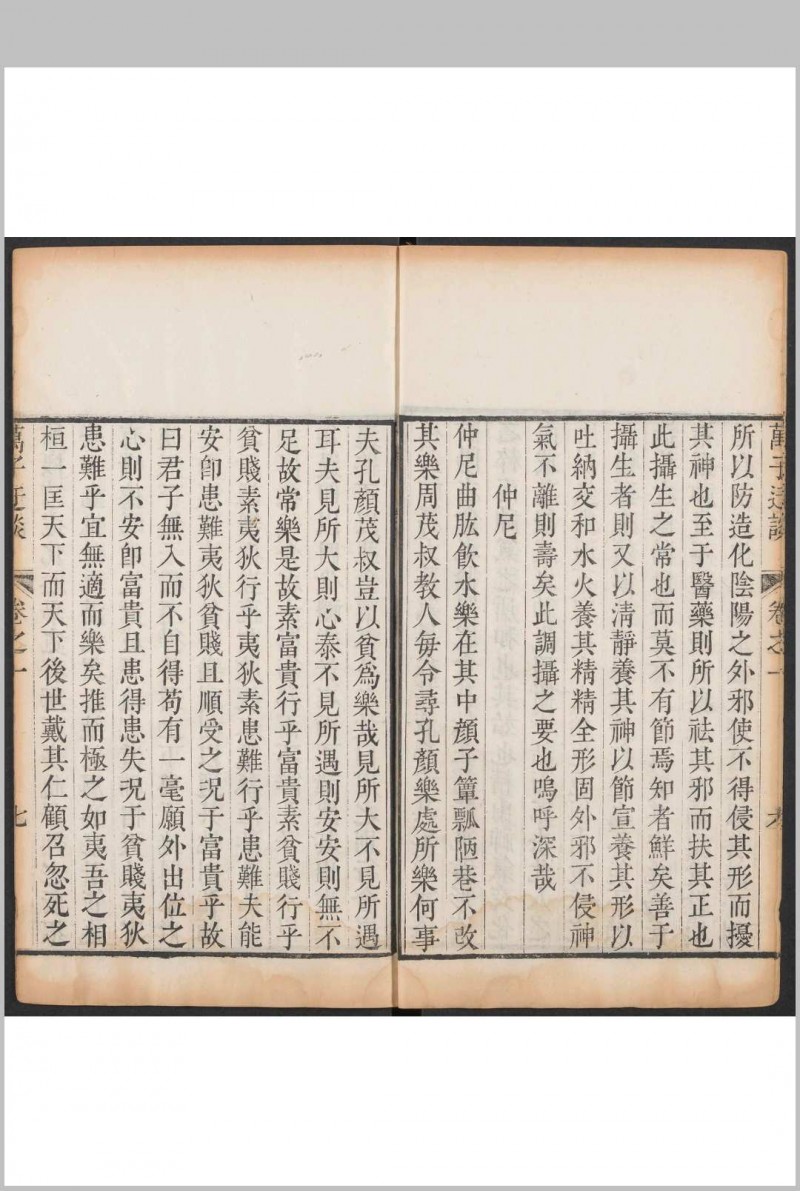 萬子迂談
卷之一
六
所以防造化陰陽之外邪使不得侵其形而擾
其神也至于醫藥則所以祛其邪而扶其正也
此攝生之常也而莫不有節焉知者鮮矣善于
攝生者則又以清靜養其神以節宣養其形以
吐納交和水火養其精精全形固外邪不侵神
氣不離則壽矣此調攝之要也嗚呼深哉
仲尼
仲尼曲肱飲水樂在其中顏子簞瓢陋巷不改
其樂周茂叔教人每令尋孔顏樂處所樂何事
夫孔顏茂叔豈以貧爲樂哉見所大不見所遇
耳夫見所大則心泰不見所遇則安安則無不
足故常樂是故素富貴行乎富貴素貧賤行乎
貧賤素夷狄行乎夷狄素患難行乎患難夫能
安卽患難夷狄貧賤且順受之况于富貴乎故
曰君子無入而不自得苟有一毫願外出位之
心則不安卽富貴且患得患失况于貧賤夷狄
患難乎宜無適而樂矣推而極之如夷吾之相
桓一匡天下而天下後世戴其仁顧召忽死之
萬子迂談
卷之一
七